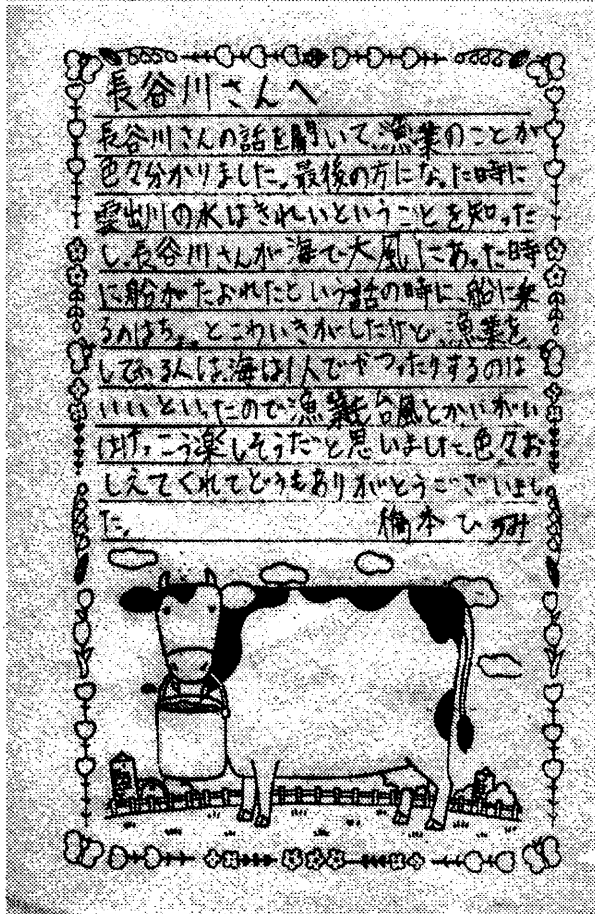 長谷川さんへ
長谷川さんの話を聞いて、漁業のことが
色々分かりました。最後の方になった時に
雲出川の水はきれいということを知った
し、長谷川さんが海で、大風にあった時
に船がたおれたという話の時に、船に乗
るのはちょっとこわいきがしたけど、漁業を
している人は、海は1人でやつったりするのは
いいといったので漁業も台風とかいがい
はけっこう楽しそうだと思いました。色々お
しえてくれてどうもありがとうございまし
た。 橋本